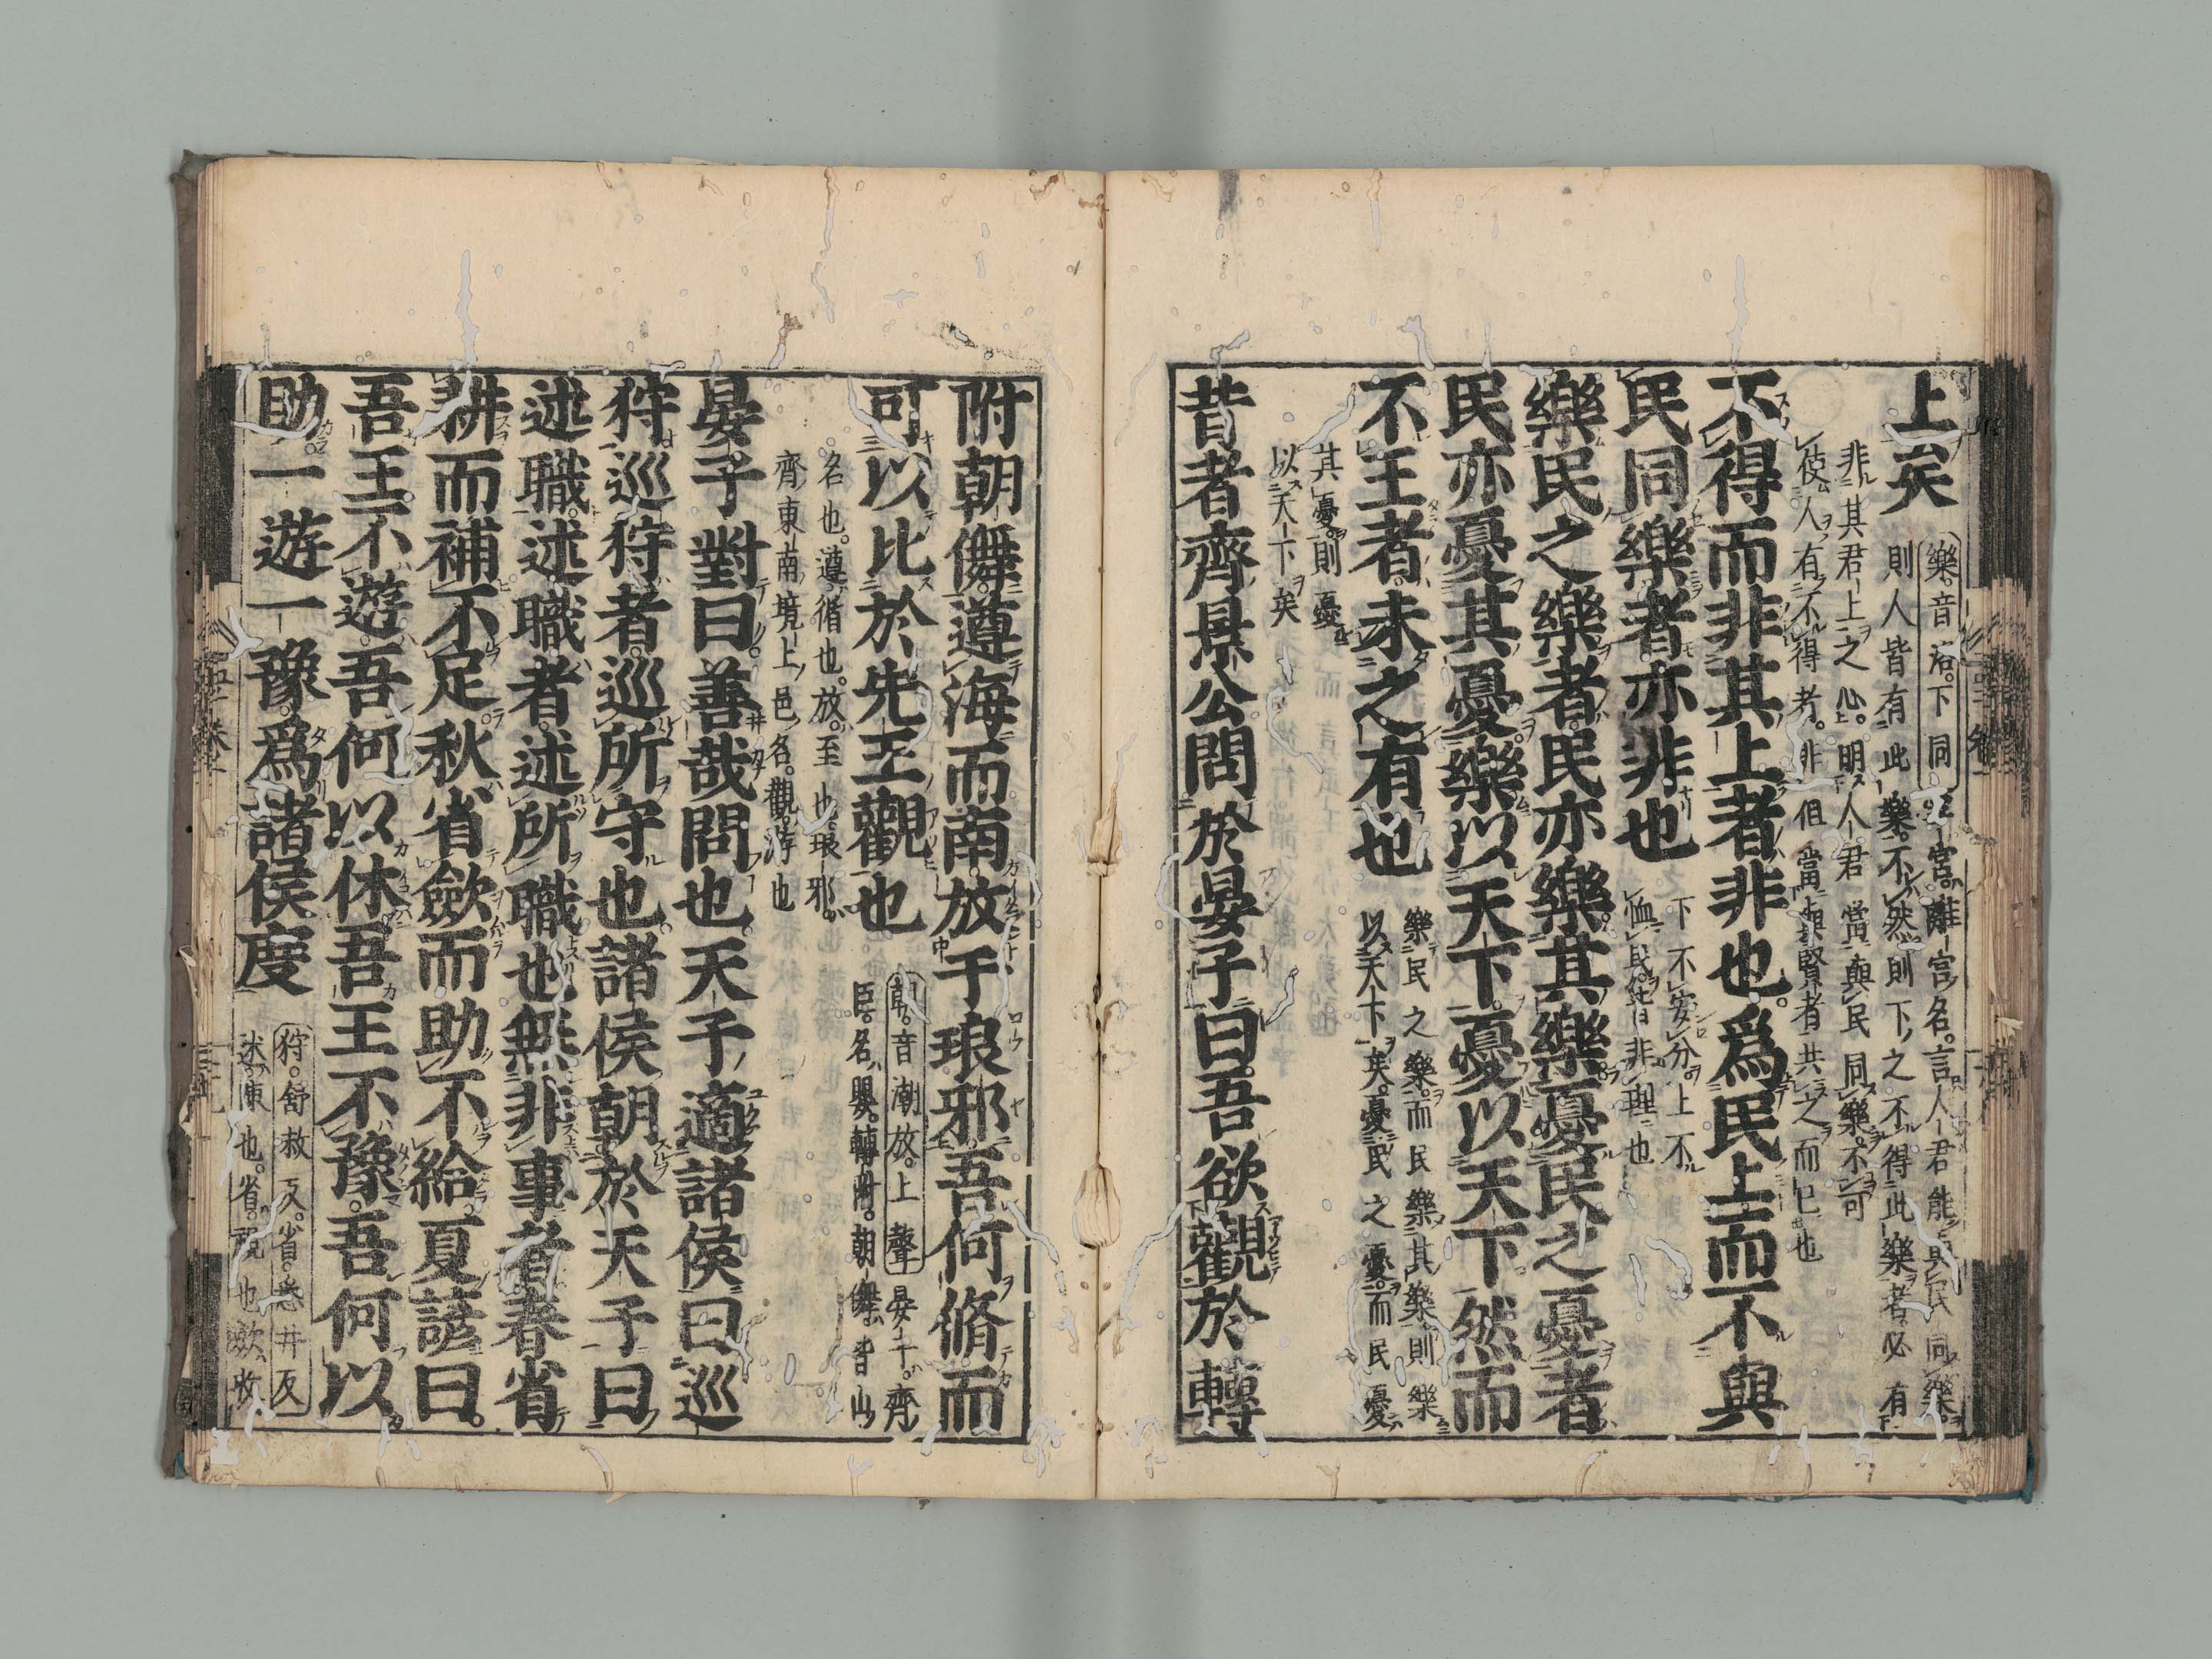 上矣 樂音洛下同 宮離宮名言人君能與民同樂
則人皆有此樂不然則下之不得此樂者必有
非其君上之心明人君當與民同樂不可
使人有不得者非但當與賢者共之而已也
不得而非其上者非也爲民上而不與
民同樂者亦非也 下不安分上不
恤民皆非理也
樂民之樂者民亦樂其樂憂民之憂者
民亦憂其憂樂以天下憂以天下然而
不王者未之有也 樂民之樂而民樂其樂則樂
以天下矣憂民之憂而民憂
其憂則憂
以天下矣
昔者齊景公問於晏子曰吾欲觀於轉
附朝儛遵海而南放于琅邪吾何脩而
可以比於先王觀也 朝音潮放上聲 晏子齊
臣名嬰轉附朝儛皆山
名也遵循也放至也琅邪
齊東南境上邑名觀游也
晏子對曰善哉問也天子適諸侯曰巡
狩巡狩者巡所守也諸侯朝於天子曰
述職述職者述所職也無非事者春省
耕而補不足秋省斂而助不給夏諺曰
吾王不遊吾何以休吾王不豫吾何以
助一遊一豫爲諸侯度 狩舒救反省悉井反
述陳也省視也斂收